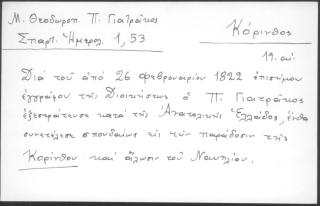 Μ. Θεοδωροπ. Π. Γιατράκος
Κόρινθος
Σπαρτ. Ἡμερολ. 1, 53
19. αἰ.
Διά τοῦ ἀπό 26 Φεβρουαρίου 1822 ἐπισήμου
ἐγγράφου τῆς Διοικήσεως ὁ Π. Γιατράκος
ἐξεστράτευσε κατά τῆς Ἀνατολικῆς Ἑλλάδος, ἔνθα
συνετέλεσε σπουδαίως εἰς τήν παράδοσιν τῆς
Κορίνθου καί ἅλωσιν τοῦ Ναυπλίου.